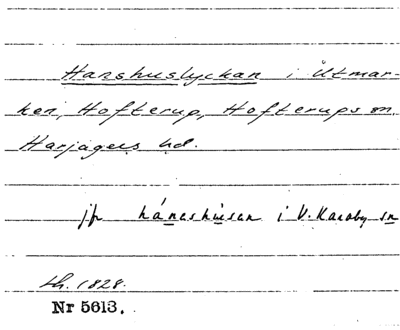 Hanshuslyckan i Utmar-
ken, Hofterup, Hofterups sn.
Harjagers hd.
jfr hánashùsen i V. Karaby sn
Lh. 1828.
Nr 5613.